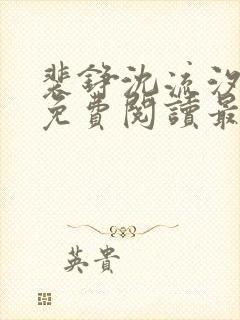 裴錚沈流汐
免費閱讀最
英貴